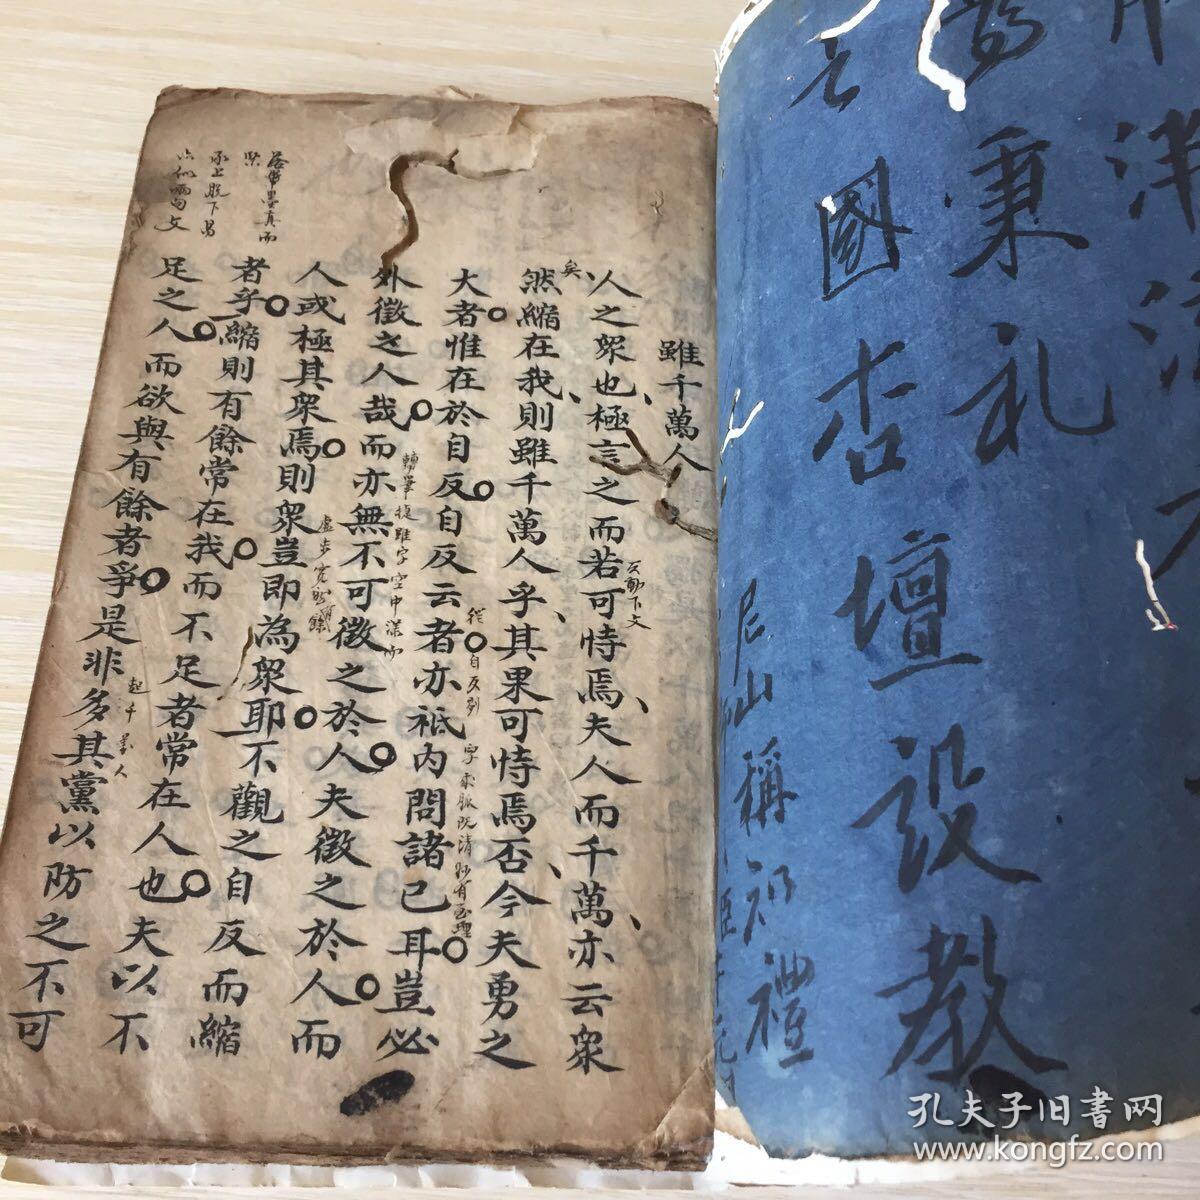 秉礼
國杏壇設教
尼山稱知禮
雖千萬人
人之衆也極言之而若可恃焉夫人而千萬亦云衆
矣
然縮在我則雖千萬人乎其果可恃焉否今夫勇之
大者惟在於自反自反云者亦祗内問諸己耳豈必
外徵之人哉而亦無不可徵之於人夫徵之於人而
人或極其衆焉則衆豈即為衆耶不觀之自反而縮
者乎縮則有餘常在我而不足者常在人也夫以不
足之人而欲與有餘者爭是非多其黨以防之不可
反動下文
轉筆提雖字空中
起千萬人
承上脫下
孔夫子旧书网
www.kongfz.com